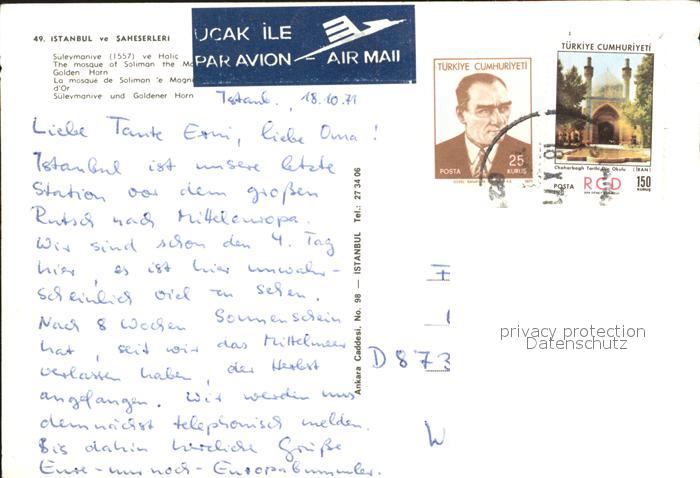 49. ISTANBUL ve ŞAHESERLERİ
Süleymaniye (1557) ve Haliç
The mosque of Soliman the Ma
Golden Horn
La mosque de Soliman 'e Magni
d'Or
Süleymaniye und Goldener Horn
UÇAK İLE
PAR AVION - AIR MAIL
TÜRKİYE CUMHURİYETİ
25
KURUŞ
POSTA
TÜRKİYE CUMHURİYETİ
Chaharbagh Tarihi Din Okulu (İRAN)
POSTA RCD 150
KURUŞ
Istanb., 18.10.71
Liebe Tante Erni, liebe Oma!
Istanbul ist unsere letzte
Station vor dem großen
Rutsch nach Mitteleuropa.
Wir sind schon den 4. Tag
hier, es ist hier unwahr-
scheinlich viel zu sehen.
Nach 8 Wochen Sonnenschein
hat, seit wir das Mittelmeer
verlassen haben, der Herbst
angefangen. Wir werden uns
demnächst telephonisch melden.
Bis dahin herzliche Grüße
Eure-nur noch-Europabummler.
Ankara Caddesi, No. 98 — İSTANBUL Tel.: 27 34 06
D 873
W
privacy protection
Datenschutz